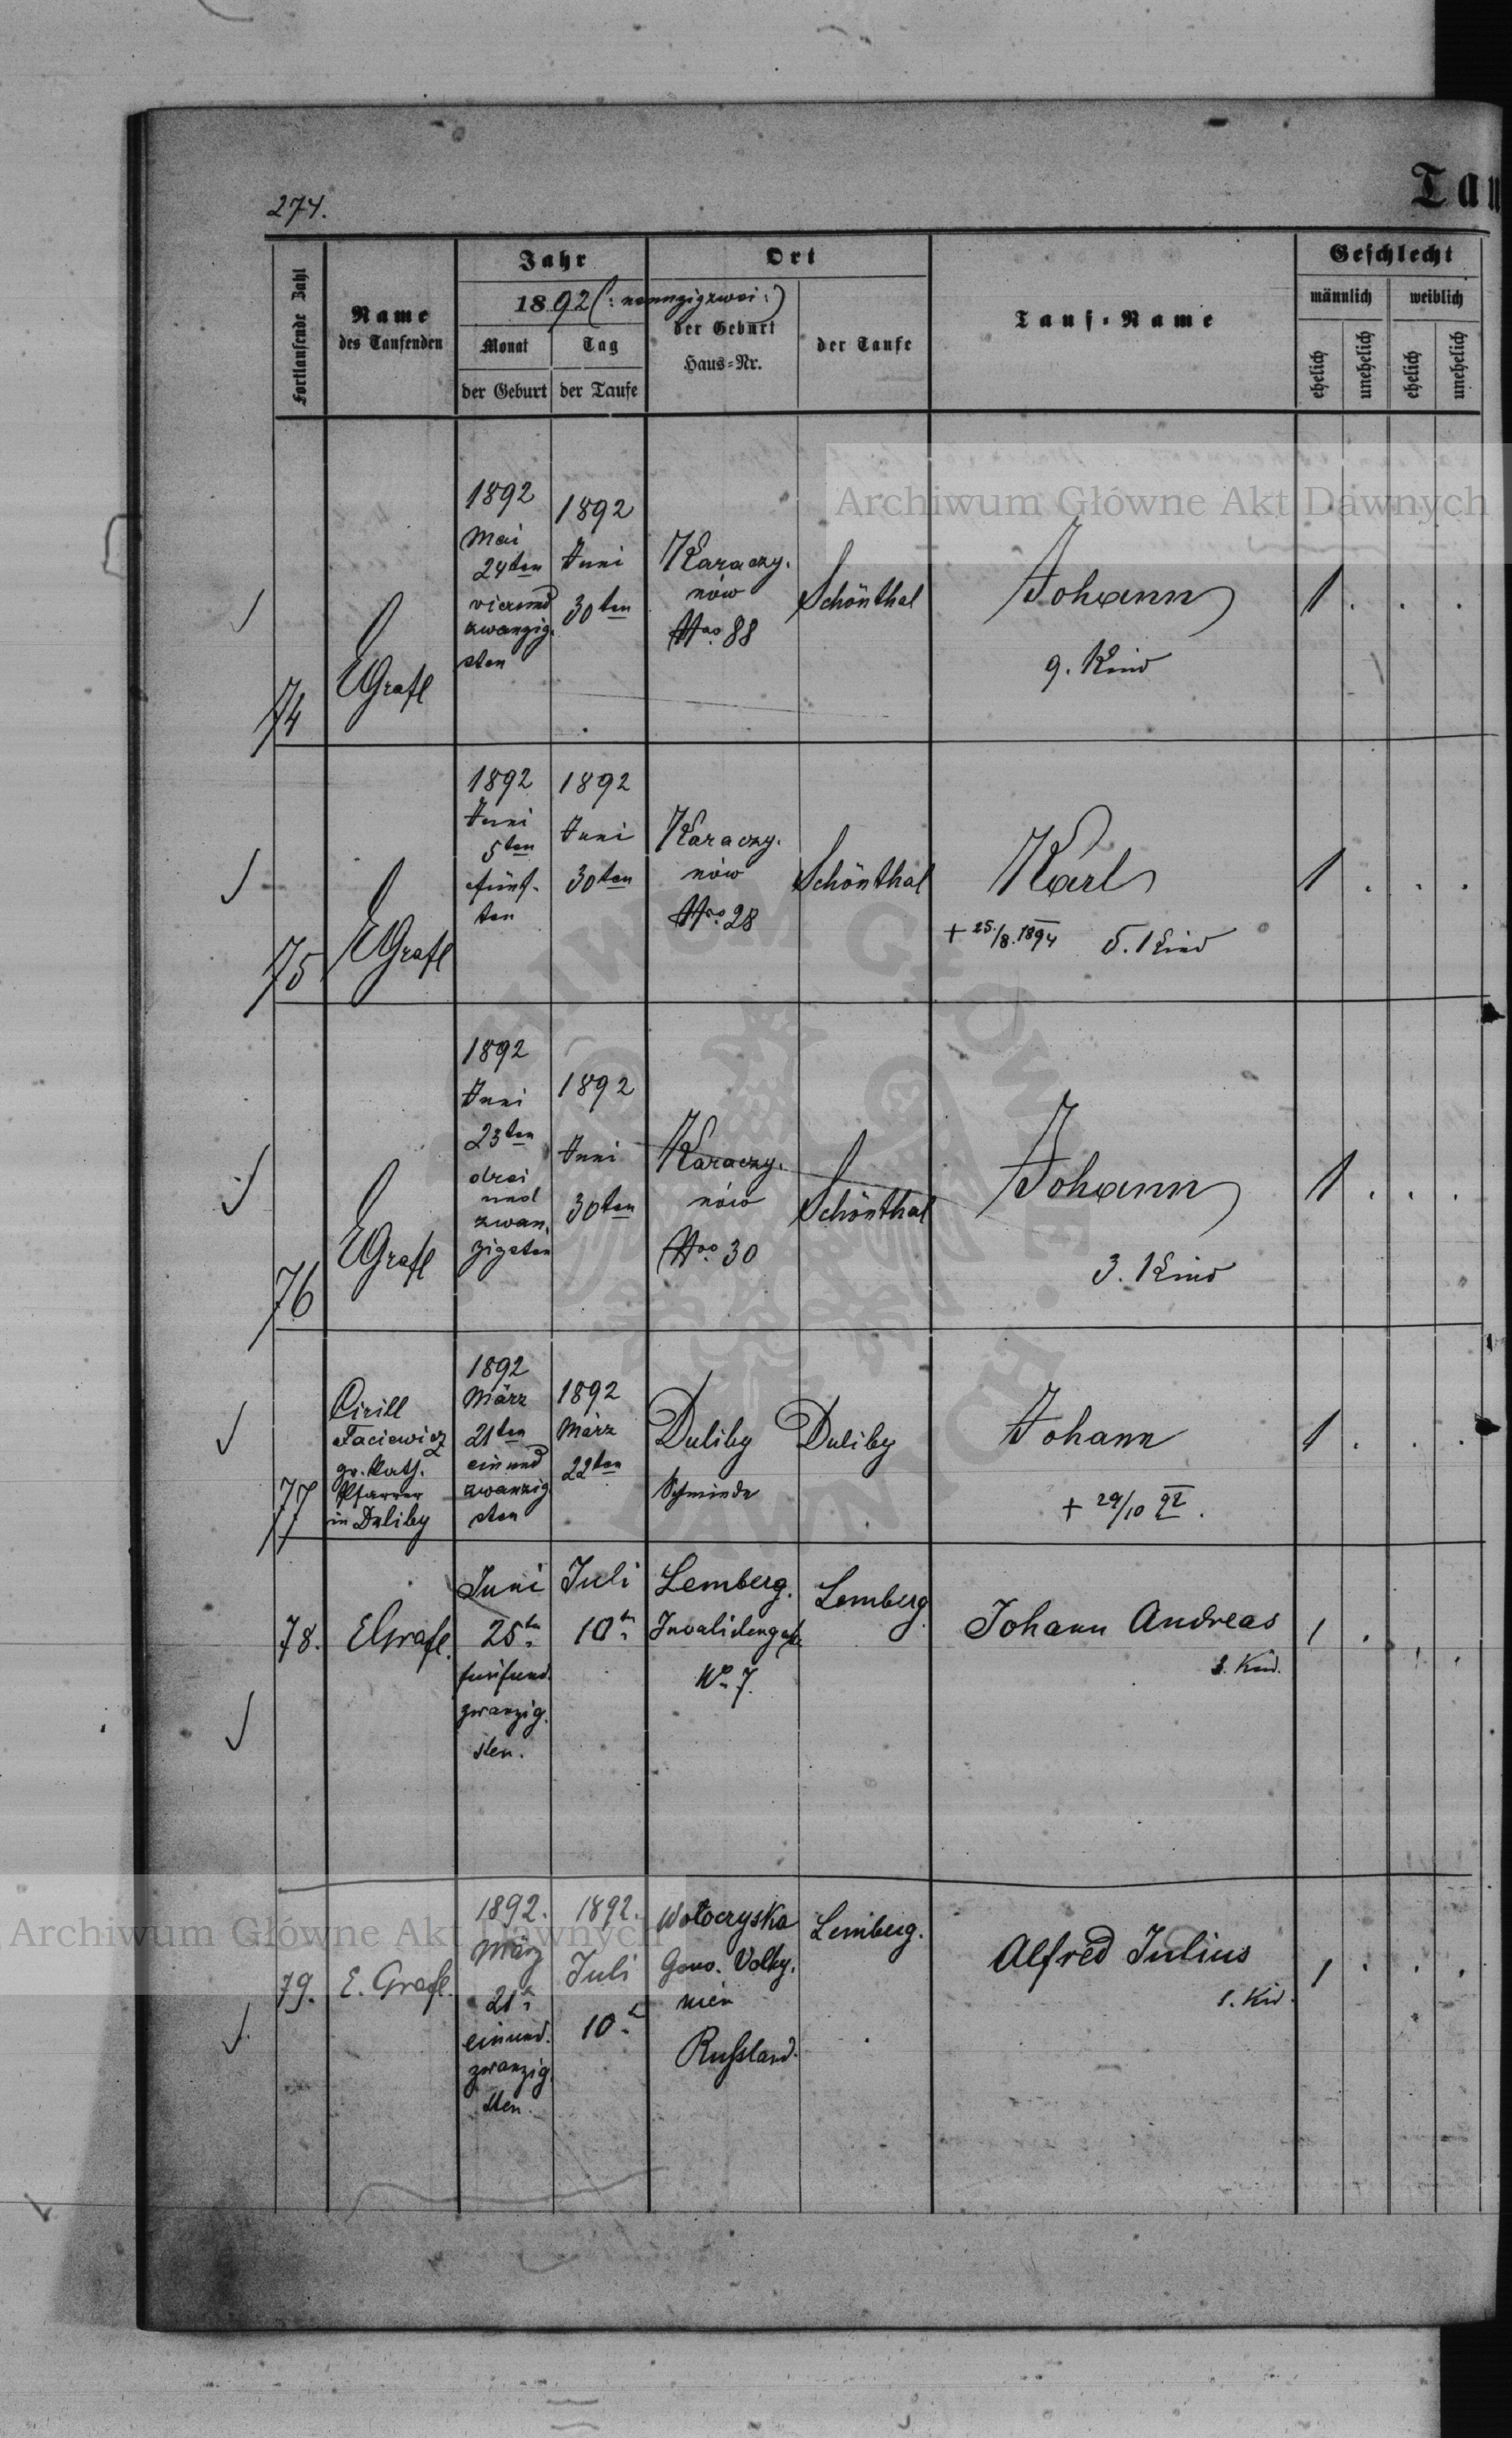 Tau
274.
Fortlaufende Zahl
Name
des Taufenden
Jahr
1892 (: neunzigzwei :)
Monat
der Geburt
Tag
der Taufe
Ort
der Geburt
Haus-Nr.
der Taufe
Tauf-Name
Geschlecht
männlich
weiblich
ehelich
unehelich
ehelich
unehelich
Archiwum Główne Akt Dawnych
74
EGrafl
1892
Mai
24ten
vierund
zwanzig.
sten
1892
Juni
30ten
Karaczy.
nów
Nro. 88
Schönthal
Johann
9. Kind
1 . . .
75
EGrafl
1892
Juni
5ten
fünf-
ten
1892
Juni
30ten
Karaczy.
nów
Nro. 28
Schönthal
Karl
+ 25./8. 1894 5. Kind
1 . . .
76
EGrafl
1892
Juni
23ten
drei
und
zwan.
zigsten
1892
Juni
30ten
Karaczy.
nów
Nro. 30
Schönthal
Johann
3. Kind
1 . . .
77
Cirill
Faciewicz
gr. kath.
Pfarrer
in Duliby
1892
März
21ten
ein und
zwanzig
sten
1892
März
22ten
Duliby
Duliby
Johann
+ 29/10 92.
1 . . .
78.
EGrafl.
Juni
25ten
fünfund.
zwanzig.
sten.
Juli
10tn
Lemberg.
Invalidengasse
No 7.
Lemberg
Johann Andreas
1 . . .
79.
E. Grafl.
1892.
März
21tn
einund.
zwanzig.
sten.
1892.
Juli
10tn
Wołoczyska
Gouv. Volhy.
nien
Russland.
Lemberg.
Alfred Julius
1. Kind.
1 . . .
Archiwum Główne Akt Dawnych
ARCHIWUM GŁÓWNE AKT DAWNYCH